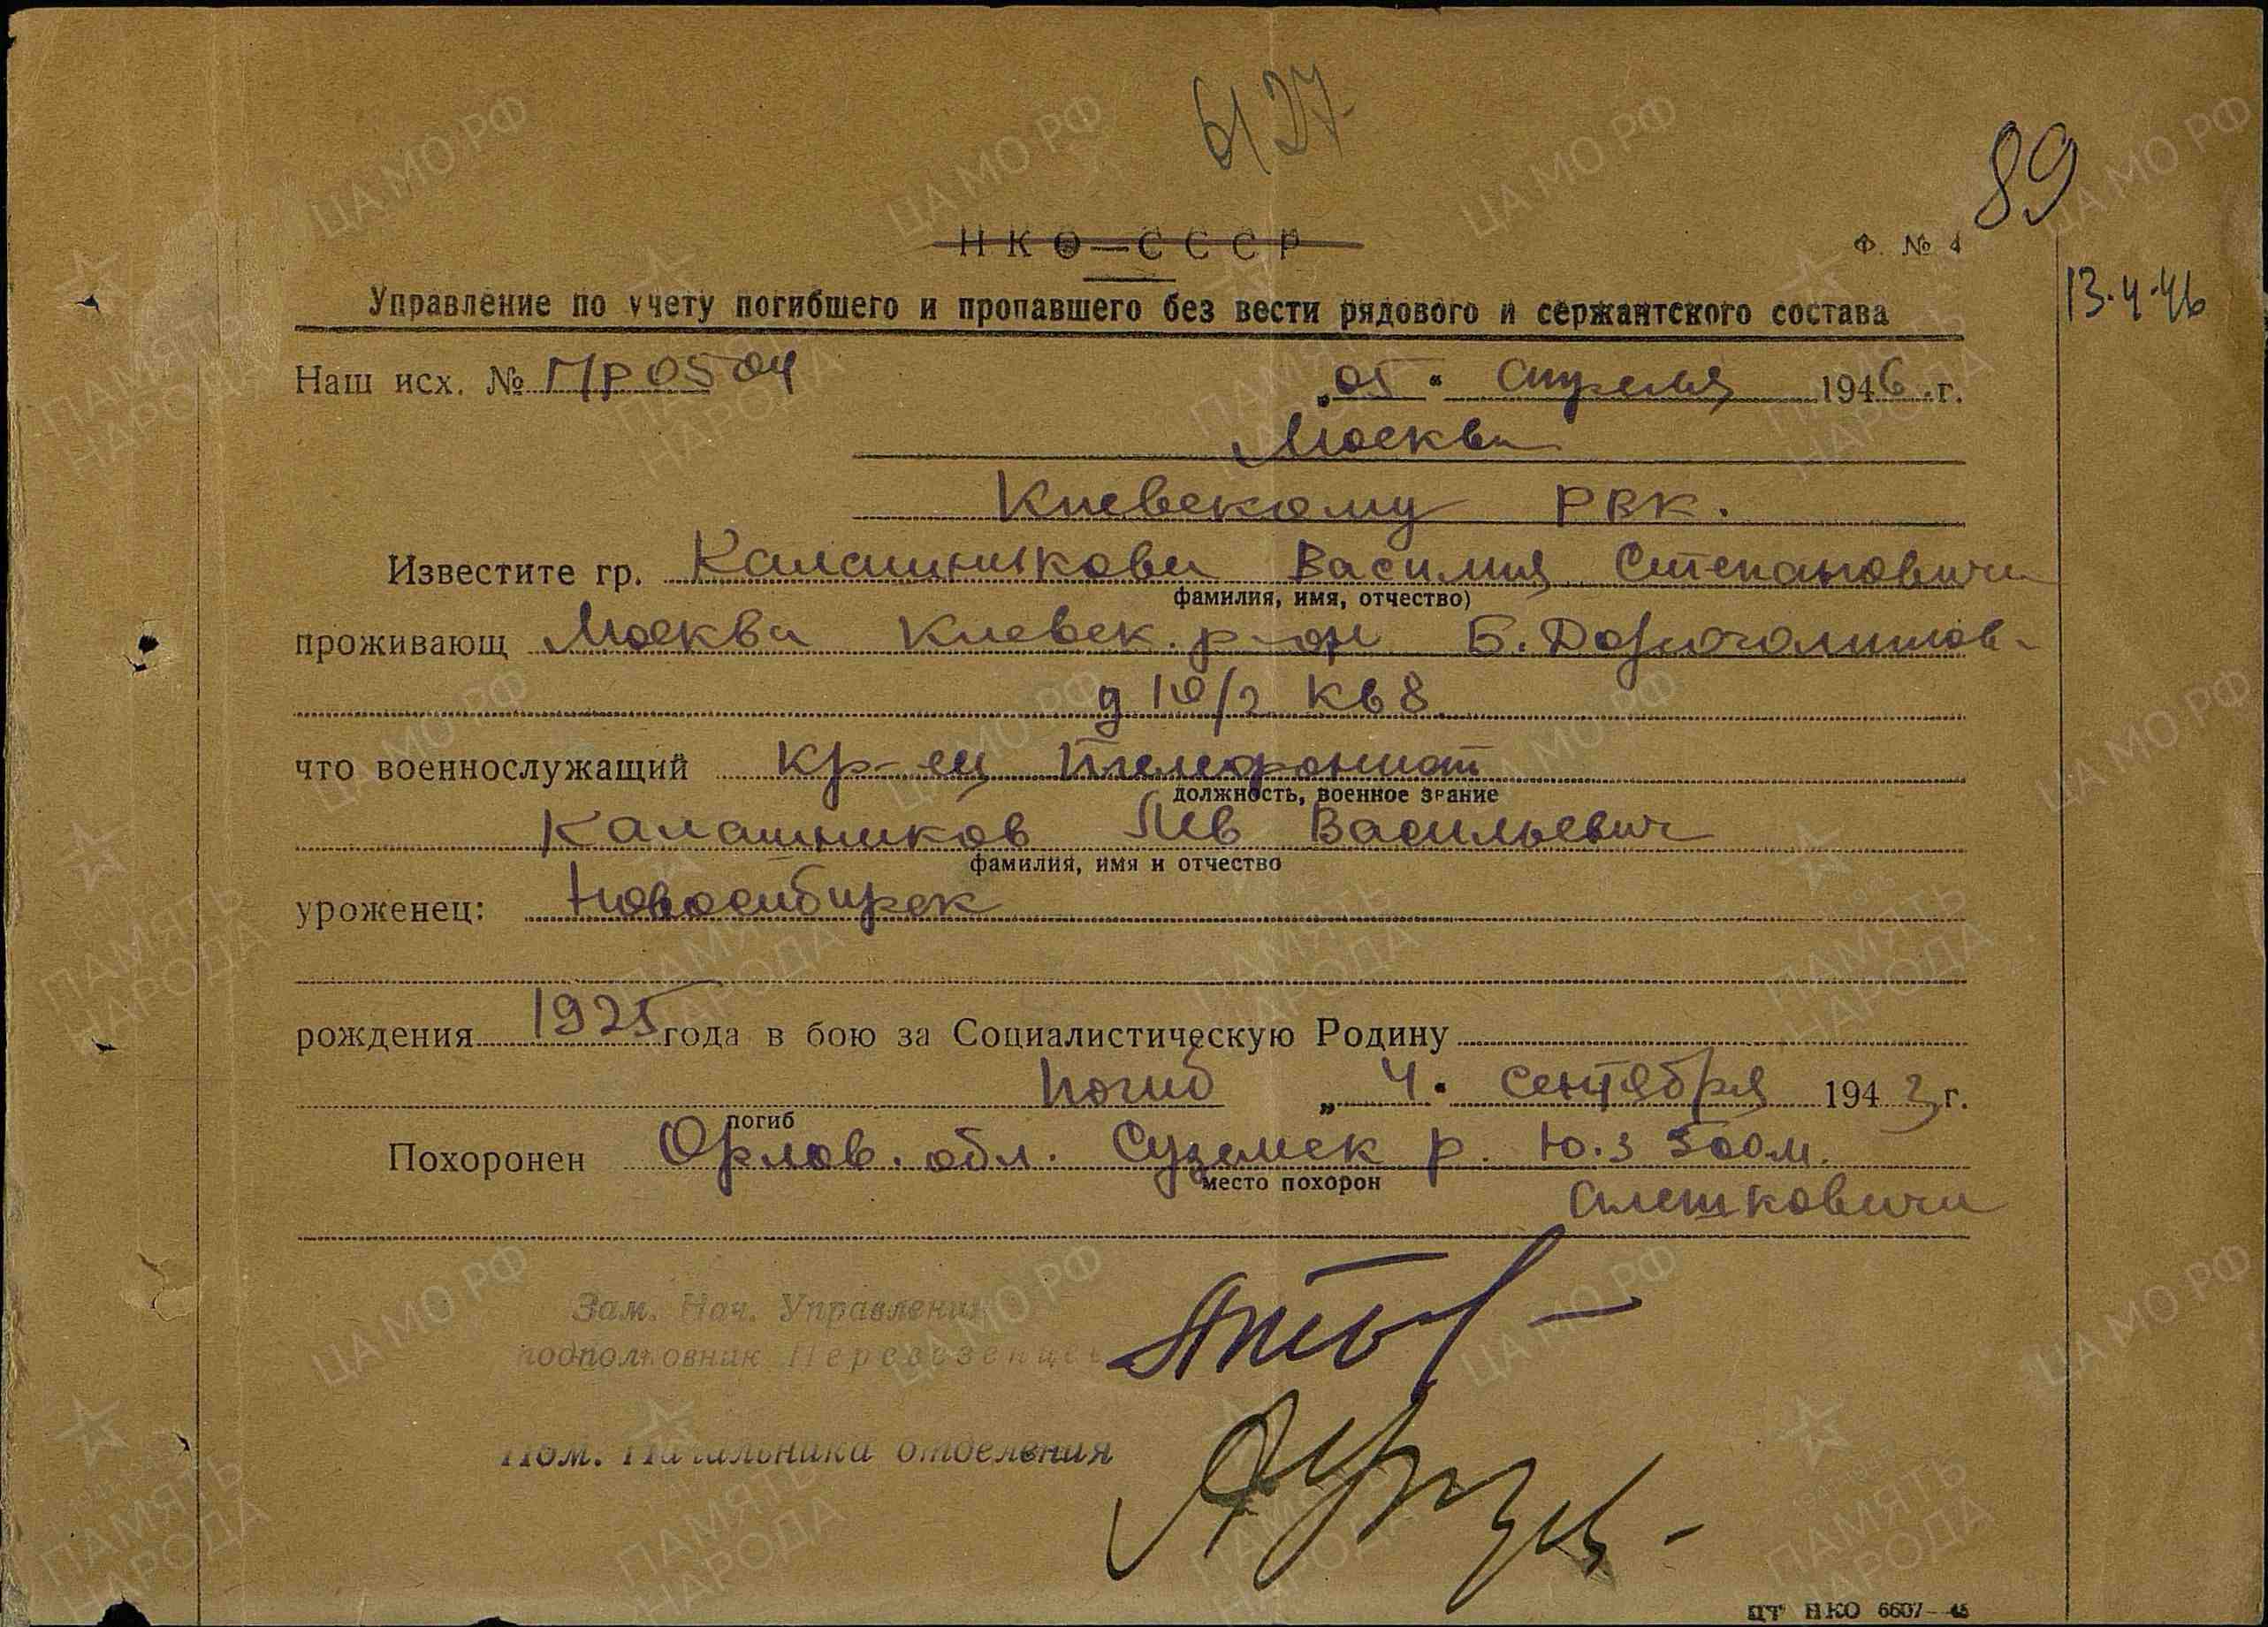 6127
89
НКО—СССР
Ф. № 4
13.4.46
Управление по учету погибшего и пропавшего без вести рядового и сержантского состава
Наш исх. № ПР 0504 „05“ апреля 1946 г.
Москва
Киевскому РВК.
Известите гр. Калашникова Василия Степановича
фамилия, имя, отчество)
проживающ Москва Киевск. р-он Б. Дорогомилов-
д 10/2 кв 8
что военнослужащий кр-ец телефонист
должность, военное звание
Калашников Лев Васильевич
фамилия, имя и отчество
уроженец: Новосибирск
рождения 1925 года в бою за Социалистическую Родину
погиб „4“ сентября 1943 г.
погиб
Похоронен Орлов. обл. Суземск р. Ю.З 500 м.
место похорон
Алешковичи
Зам. Нач. Управления
подполковник Перевезенцев
Пом. Начальника отделения
ЦТ НКО 6607—45
ЦА МО РФ
ПАМЯТЬ НАРОДА